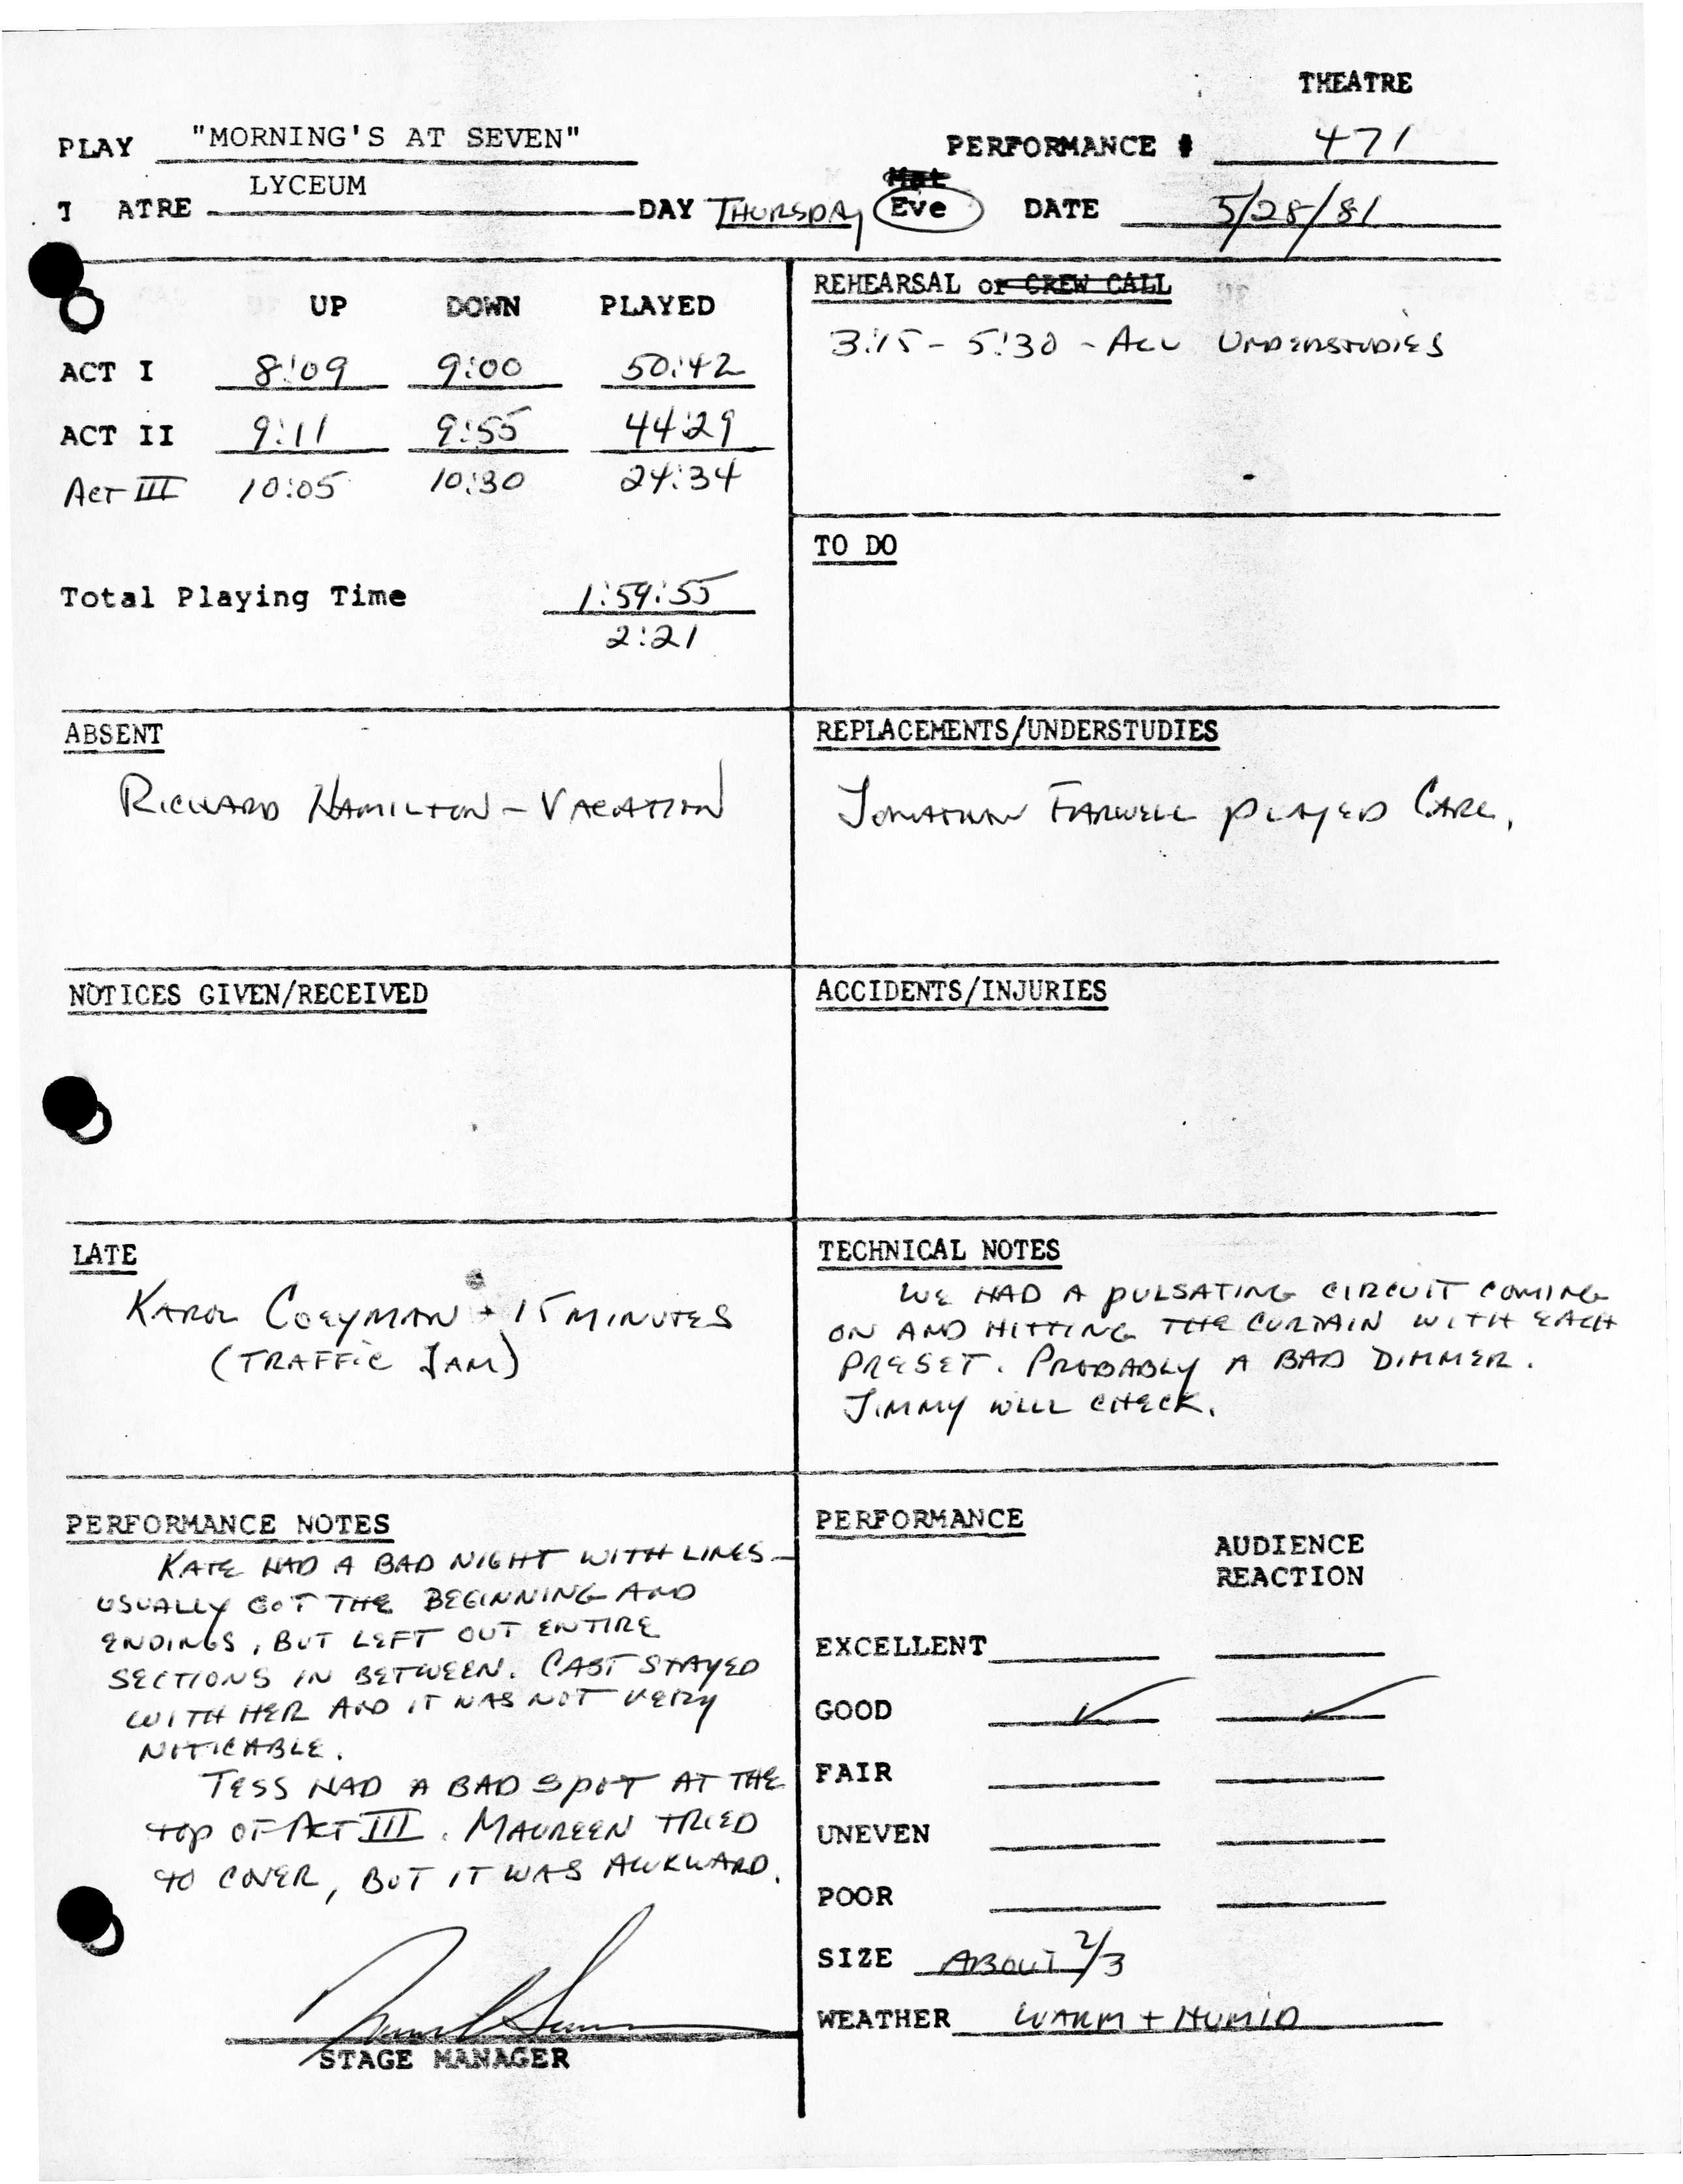 THEATRE
PLAY "MORNING'S AT SEVEN" PERFORMANCE # 471
T ATRE LYCEUM DAY THURSDAY Mat Eve DATE 5/28/81
UP DOWN PLAYED
ACT I 8:09 9:00 50:42
ACT II 9:11 9:55 44:29
ACT III 10:05 10:30 24:34
Total Playing Time 1:59:55
2:21
REHEARSAL or CREW CALL
3:15 - 5:30 - ALL UNDERSTUDIES
TO DO
ABSENT
RICHARD HAMILTON - VACATION
REPLACEMENTS/UNDERSTUDIES
JONATHAN FARWELL PLAYED CARL.
NOTICES GIVEN/RECEIVED
ACCIDENTS/INJURIES
LATE
KAROL COEYMAN - 15 MINUTES
(TRAFFIC JAM)
TECHNICAL NOTES
WE HAD A PULSATING CIRCUIT COMING
ON AND HITTING THE CURTAIN WITH EACH
PRESET. PROBABLY A BAD DIMMER.
JIMMY WILL CHECK.
PERFORMANCE NOTES
KATE HAD A BAD NIGHT WITH LINES -
USUALLY GOT THE BEGINNING AND
ENDINGS, BUT LEFT OUT ENTIRE
SECTIONS IN BETWEEN. CAST STAYED
WITH HER AND IT WAS NOT VERY
NOTICABLE.
TESS HAD A BAD SPOT AT THE
TOP OF ACT III. MAUREEN TRIED
TO COVER, BUT IT WAS AWKWARD.
STAGE MANAGER
PERFORMANCE
AUDIENCE
REACTION
EXCELLENT
GOOD ✓ ✓
FAIR
UNEVEN
POOR
SIZE ABOUT 2/3
WEATHER WARM + HUMID